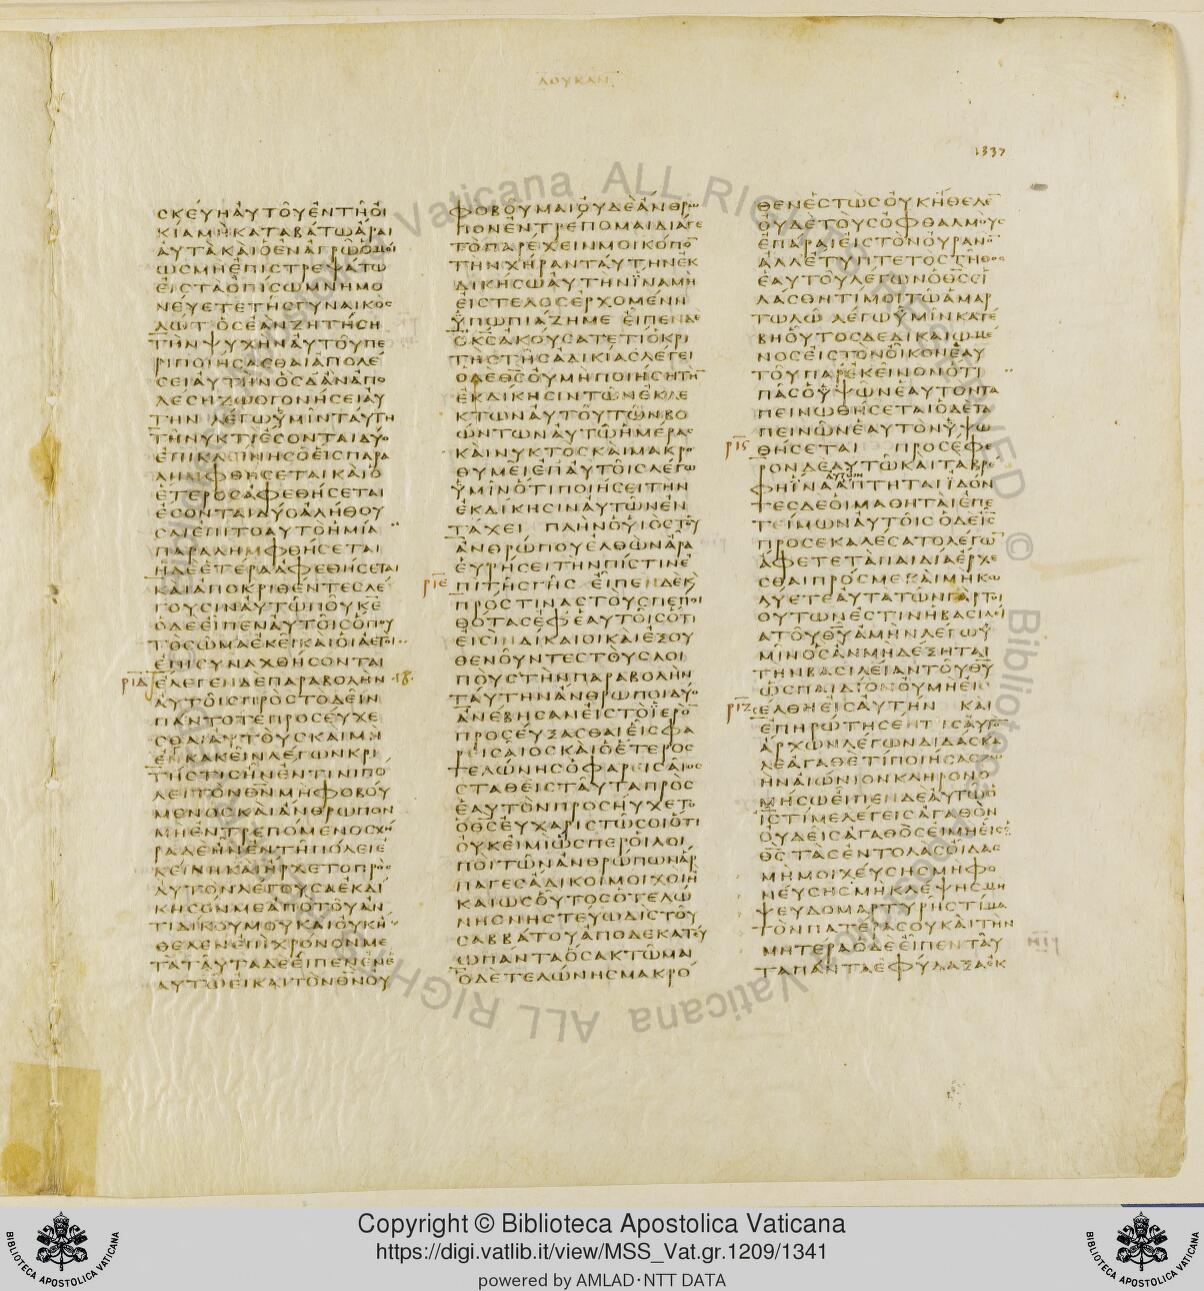 ΛΟΥΚΑΝ
1337
ΣΚΕΥΗΑΥΤΟΥΕΝΤΗΟΙ
ΚΙΑΜΗΚΑΤΑΒΑΤΩΑΡΑΙ
ΑΥΤΑΚΑΙΟΕΝΑΓΡΩΟΜΟΙ
ΩΣΜΗΕΠΙΣΤΡΕΨΑΤΩ
ΕΙΣΤΑΟΠΙΣΩΜΝΗΜΟ
ΝΕΥΕΤΕΤΗΣΓΥΝΑΙΚΟΣ
ΛΩΤΟΣΕΑΝΖΗΤΗΣΗ
ΤΗΝΨΥΧΗΝΑΥΤΟΥΠΕ
ΡΙΠΟΙΗΣΑΣΘΑΙΑΠΟΛΕ
ΣΕΙΑΥΤΗΝΟΣΔΑΝΑΠΟ
ΛΕΣΗΖΩΟΓΟΝΗΣΕΙΑΥ
ΤΗΝ ΛΕΓΩΥΜΙΝΤΑΥΤΗ
ΤΗΝΥΚΤΙΕΣΟΝΤΑΙΔΥΟ
ΕΠΙΚΛΕΙΝΗΣΟΕΙΣΠΑΡΑ
ΛΗΜΦΘΗΣΕΤΑΙΚΑΙΟ
ΕΤΕΡΟΣΑΦΕΘΗΣΕΤΑΙ
ΕΣΟΝΤΑΙΔΥΟΑΛΗΘΟΥ
ΣΑΙΕΠΙΤΟΑΥΤΟΗΜΙΑ
ΠΑΡΑΛΗΜΦΘΗΣΕΤΑΙ
ΗΔΕΕΤΕΡΑΑΦΕΘΗΣΕΤΑΙ
ΚΑΙΑΠΟΚΡΙΘΕΝΤΕΣΛΕ
ΓΟΥΣΙΝΑΥΤΩΠΟΥΚΕ
ΟΔΕΕΙΠΕΝΑΥΤΟΙΣΟΠΟΥ
ΤΟΣΩΜΑΕΚΕΙΚΑΙΟΙΑΕΤΟΙ
ΕΠΙΣΥΝΑΧΘΗΣΟΝΤΑΙ
ΡΙΔ ΕΛΕΓΕΝΔΕΠΑΡΑΒΟΛΗΝ
ΑΥΤΟΙΣΠΡΟΣΤΟΔΕΙΝ
ΠΑΝΤΟΤΕΠΡΟΣΕΥΧΕ
ΣΘΑΙΑΥΤΟΥΣΚΑΙΜΗ
ΕΝΚΑΚΕΙΝΛΕΓΩΝΚΡΙ
ΤΗΣΤΙΣΗΝΕΝΤΙΝΙΠΟ
ΛΕΙΤΟΝΘΝΜΗΦΟΒΟΥ
ΜΕΝΟΣΚΑΙΑΝΘΡΩΠΟΝ
ΜΗΕΝΤΡΕΠΟΜΕΝΟΣΧΗ
ΡΑΔΕΗΝΕΝΤΗΠΟΛΕΙΕ
ΚΕΙΝΗΚΑΙΗΡΧΕΤΟΠΡΟΣ
ΑΥΤΟΝΛΕΓΟΥΣΑΕΚΔΙ
ΚΗΣΟΝΜΕΑΠΟΤΟΥΑΝ
ΤΙΔΙΚΟΥΜΟΥΚΑΙΟΥΚΗ
ΘΕΛΕΝΕΠΙΧΡΟΝΟΝΜΕ
ΤΑΤΑΥΤΑΔΕΕΙΠΕΝΕΝΕ
ΑΥΤΩΕΙΚΑΙΤΟΝΘΝΟΥ
ΦΟΒΟΥΜΑΙΟΥΔΕΑΝΘΡΩ
ΠΟΝΕΝΤΡΕΠΟΜΑΙΔΙΑΓΕ
ΤΟΠΑΡΕΧΕΙΝΜΟΙΚΟΠΟ
ΤΗΝΧΗΡΑΝΤΑΥΤΗΝΕΚ
ΔΙΚΗΣΩΑΥΤΗΝΙΝΑΜΗ
ΕΙΣΤΕΛΟΣΕΡΧΟΜΕΝΗ
ΥΠΩΠΙΑΖΗΜΕ ΕΙΠΕΝΔΕ
ΟΚΣΑΚΟΥΣΑΤΕΤΙΟΚΡΙ
ΤΗΣΤΗΣΑΔΙΚΙΑΣΛΕΓΕΙ
ΟΔΕΘΣΟΥΜΗΠΟΙΗΣΗΤΗ
ΕΚΔΙΚΗΣΙΝΤΩΝΕΚΛΕ
ΚΤΩΝΑΥΤΟΥΤΩΝΒΟ
ΩΝΤΩΝΑΥΤΩΗΜΕΡΑΣ
ΚΑΙΝΥΚΤΟΣΚΑΙΜΑΚΡΟ
ΘΥΜΕΙΕΠΑΥΤΟΙΣΛΕΓΩ
ΥΜΙΝΟΤΙΠΟΙΗΣΕΙΤΗΝ
ΕΚΔΙΚΗΣΙΝΑΥΤΩΝΕΝ
ΤΑΧΕΙ ΠΛΗΝΟΥΙΟΣΤΟΥ
ΑΝΘΡΩΠΟΥΕΛΘΩΝΑΡΑ
ΕΥΡΗΣΕΙΤΗΝΠΙΣΤΙΝΕ
ΡΙΕ ΠΙΤΗΣΓΗΣ ΕΙΠΕΝΔΕΚ
ΠΡΟΣΤΙΝΑΣΤΟΥΣΠΕΠΟΙ
ΘΟΤΑΣΕΦΕΑΥΤΟΙΣΟΤΙ
ΕΙΣΙΝΔΙΚΑΙΟΙΚΑΙΕΞΟΥ
ΘΕΝΟΥΝΤΕΣΤΟΥΣΛΟΙ
ΠΟΥΣΤΗΝΠΑΡΑΒΟΛΗΝ
ΤΑΥΤΗΝΑΝΘΡΩΠΟΙΔΥΟ
ΑΝΕΒΗΣΑΝΕΙΣΤΟΙΕΡΟ
ΠΡΟΣΕΥΞΑΣΘΑΙΕΙΣΦΑ
ΡΕΙΣΑΙΟΣΚΑΙΟΕΤΕΡΟΣ
ΤΕΛΩΝΗΣΟΦΑΡΕΙΣΑΙΟΣ
ΣΤΑΘΕΙΣΤΑΥΤΑΠΡΟΣ
ΕΑΥΤΟΝΠΡΟΣΗΥΧΕΤΟ
ΟΘΣΕΥΧΑΡΙΣΤΩΣΟΙΟΤΙ
ΟΥΚΕΙΜΙΩΣΠΕΡΟΙΛΟΙ
ΠΟΙΤΩΝΑΝΘΡΩΠΩΝΑΡ
ΠΑΓΕΣΑΔΙΚΟΙΜΟΙΧΟΙΗ
ΚΑΙΩΣΟΥΤΟΣΟΤΕΛΩ
ΝΗΣΝΗΣΤΕΥΩΔΙΣΤΟΥ
ΣΑΒΒΑΤΟΥΑΠΟΔΕΚΑΤΕΥ
ΩΠΑΝΤΑΟΣΑΚΤΩΜΑΙ
ΟΔΕΤΕΛΩΝΗΣΜΑΚΡΟ
ΘΕΝΕΣΤΩΣΟΥΚΗΘΕΛΕ
ΟΥΔΕΤΟΥΣΟΦΘΑΛΜΟΥΣ
ΕΠΑΡΑΙΕΙΣΤΟΝΟΥΡΑΝΟ
ΑΛΛΕΤΥΠΤΕΤΟΣΤΗΘΟΣ
ΕΑΥΤΟΥΛΕΓΩΝΟΘΣΕΙ
ΛΑΣΘΗΤΙΜΟΙΤΩΑΜΑΡ
ΤΩΛΩ ΛΕΓΩΥΜΙΝΚΑΤΕ
ΒΗΟΥΤΟΣΔΕΔΙΚΑΙΩΜΕ
ΝΟΣΕΙΣΤΟΝΟΙΚΟΝΕΑΥ
ΤΟΥΠΑΡΕΚΕΙΝΟΝΟΤΙ
ΠΑΣΟΥΨΩΝΕΑΥΤΟΝΤΑ
ΠΕΙΝΩΘΗΣΕΤΑΙΟΔΕΤΑ
ΠΕΙΝΩΝΕΑΥΤΟΝΥΨΩ
ΡΙϚ ΘΗΣΕΤΑΙ ΠΡΟΣΕΦΕ
ΡΟΝΔΕΑΥΤΩΚΑΙΤΑΒΡΕ
ΦΗΙΝΑΑΥΤΩΝΑΠΤΗΤΑΙΙΔΟΝ
ΤΕΣΔΕΟΙΜΑΘΗΤΑΙΕΠΕ
ΤΕΙΜΩΝΑΥΤΟΙΣΟΔΕΙΣ
ΠΡΟΣΕΚΑΛΕΣΑΤΟΛΕΓΩ
ΑΦΕΤΕΤΑΠΑΙΔΙΑΕΡΧΕ
ΣΘΑΙΠΡΟΣΜΕΚΑΙΜΗΚΩ
ΛΥΕΤΕΑΥΤΑΤΩΝΓΑΡΤΟΙ
ΟΥΤΩΝΕΣΤΙΝΗΒΑΣΙΛΕΙ
ΑΤΟΥΘΥΑΜΗΝΛΕΓΩΥ
ΜΙΝΟΣΑΝΜΗΔΕΞΗΤΑΙ
ΤΗΝΒΑΣΙΛΕΙΑΝΤΟΥΘΥ
ΩΣΠΑΙΔΙΟΝΟΥΜΗΕΙΣ
ΡΙΖ ΕΛΘΗΕΙΣΑΥΤΗΝ ΚΑΙ
ΕΠΗΡΩΤΗΣΕΝΤΙΣΑΥΤΟ
ΑΡΧΩΝΛΕΓΩΝΔΙΔΑΣΚΑ
ΛΕΑΓΑΘΕΤΙΠΟΙΗΣΑΣΖΩ
ΗΝΑΙΩΝΙΟΝΚΛΗΡΟΝΟ
ΜΗΣΩΕΙΠΕΝΔΕΑΥΤΩΟ
ΙΣΤΙΜΕΛΕΓΕΙΣΑΓΑΘΟΝ
ΟΥΔΕΙΣΑΓΑΘΟΣΕΙΜΗΕΙΣ
ΘΣΤΑΣΕΝΤΟΛΑΣΟΙΔΑΣ
ΜΗΜΟΙΧΕΥΣΗΣΜΗΦΟ
ΝΕΥΣΗΣΜΗΚΛΕΨΗΣΜΗ
ΨΕΥΔΟΜΑΡΤΥΡΗΣΤΙΜΑ
ΤΟΝΠΑΤΕΡΑΣΟΥΚΑΙΤΗΝ
ΜΗΤΕΡΑΟΔΕΕΙΠΕΝΤΑΥ
ΤΑΠΑΝΤΑΕΦΥΛΑΞΑΕΚ
Copyright © Biblioteca Apostolica Vaticana
https://digi.vatlib.it/view/MSS_Vat.gr.1209/1341
powered by AMLAD·NTT DATA
BIBLIOTECA APOSTOLICA VATICANA
BIBLIOTECA APOSTOLICA VATICANA